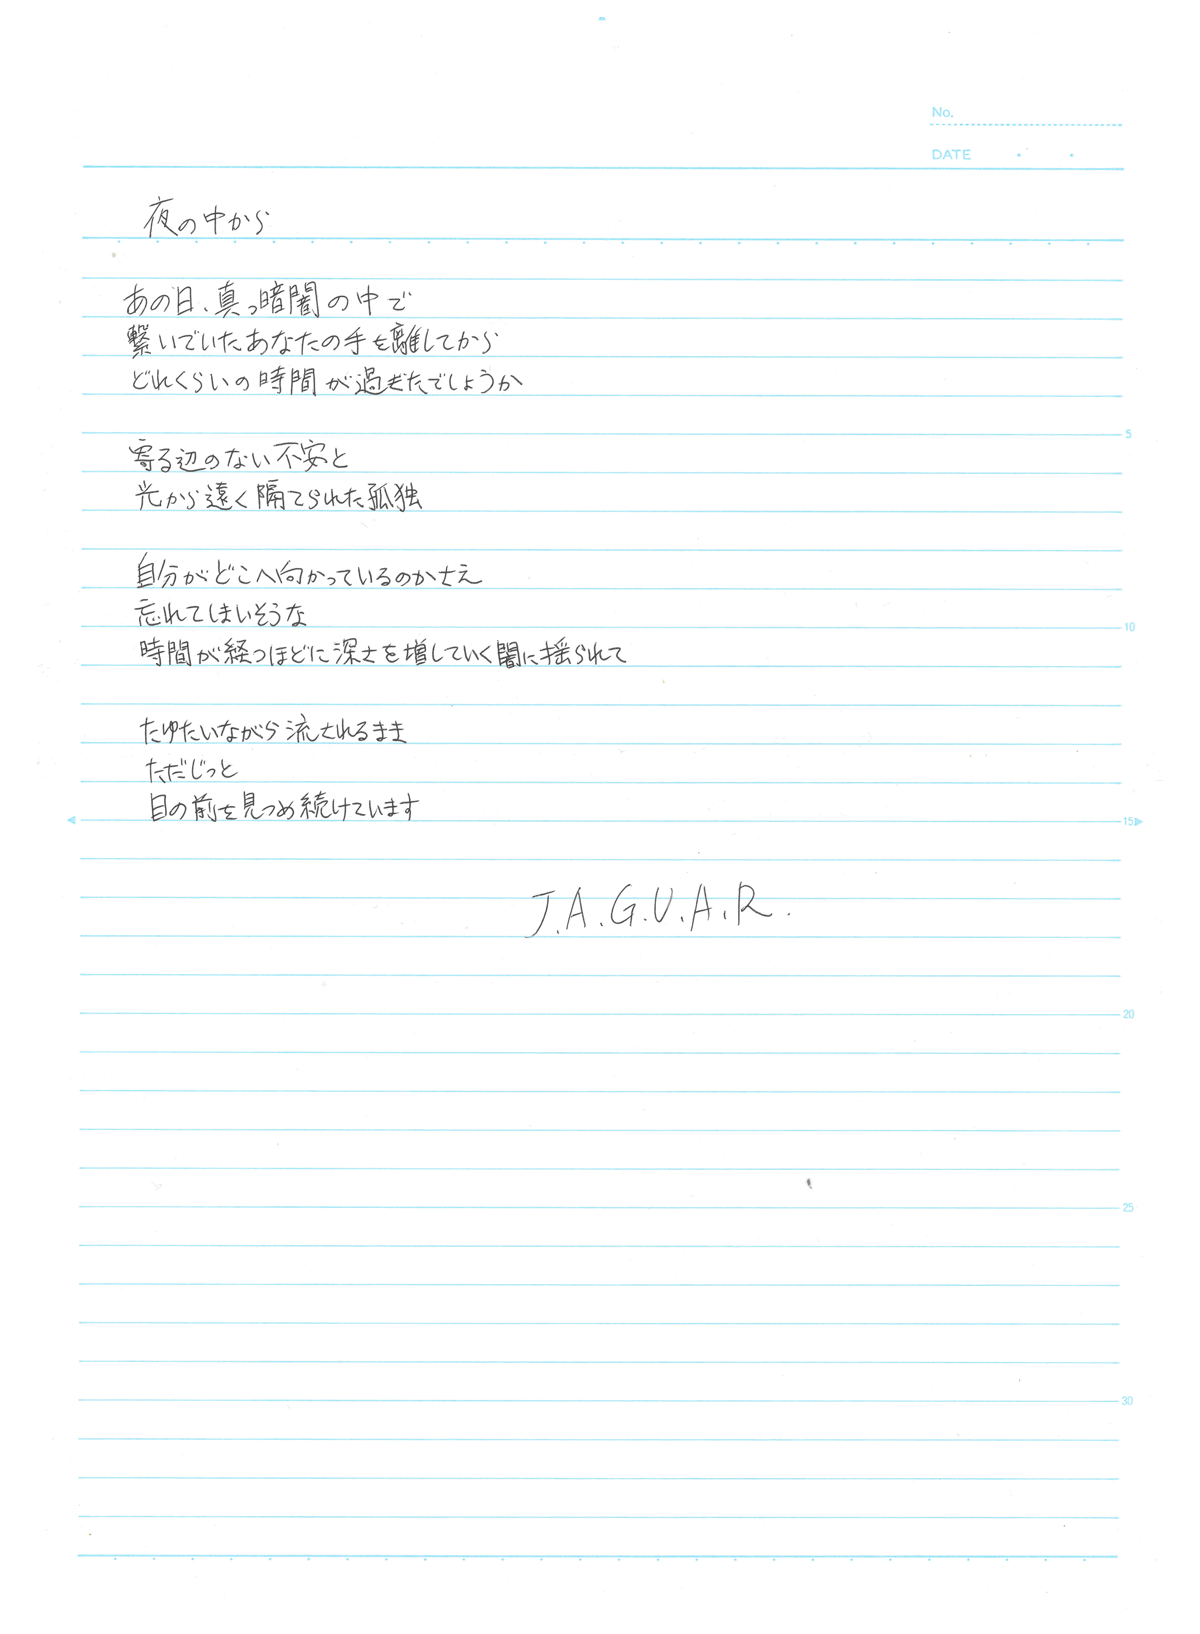 No.
DATE
夜の中から
あの日、真っ暗闇の中で
繋いでいたあなたの手を離してから
どれくらいの時間が過ぎたでしょうか
5
寄る辺のない不安と
光から遠く隔てられた孤独
自分がどこへ向かっているのかさえ
忘れてしまいそうな
10
時間が経つほどに深さを増していく闇に揺られて
たゆたいながら流されるまま
ただじっと
目の前を見つめ続けています
15
J.A.G.U.A.R.
20
25
30